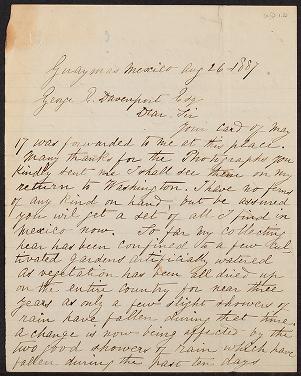 Guaymas Mexico Aug 26 1887
George E. Davenport Esq
Dear Sir
Your card of May
17 was forwarded to me at this place.
Many thanks for the Photographs you
kindly sent me I shall see them on my
return to Washington. I have no ferns
of any kind on hand, but be assured
you will get a set of all I find in
Mexico now. So far my collecting
hear has been confined to a few cul
tivated gardens artificially watered
as vegetation has been all dried up
on the entire country for near three
years as only a few slight showers of
rain have fallen during that time.
a change is now being affected by the
two good showers of rain which have
fallen during the past ten days